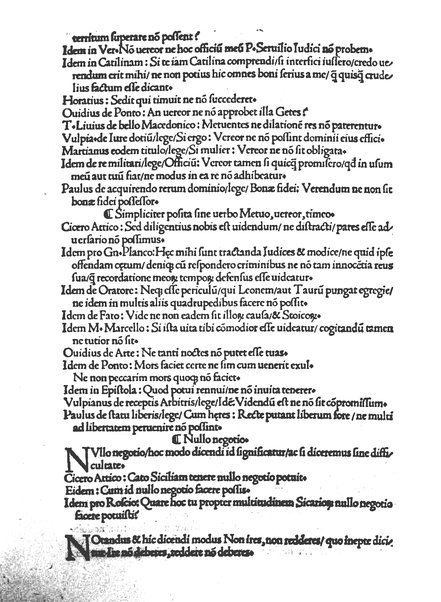 territum superare nõ possent?
Idem in Ver. Nõ uereor ne hoc officiũ meũ P. Seruilio Iudici nõ probem.
Idem in Catilinam: Si te iam Catilina comprendi/si interfici iussero/credo ue/
rendum erit mihi/ne non potius hic omnes boni serius a me/q̃ quisq̃ crude/
lius factum esse dicant.
Horatius: Sedit qui timuit ne nõ succederet.
Ouidius de Ponto: An uereor ne nõ approbet illa Getes?
T. Liuius de bello Macedonico: Metuentes ne dilationẽ res nõ paterentur.
Vulpia. de Iure dotiũ/lege/Si ergo: Vereor ne nõ possint dominii eius effici.
Martianus eodem titulo/lege/Si mulier: Vereor ne nõ sit obligata.
Idem de re militari/lege/Officiũ: Vereor tamen si quicq̃ promisero/qđ in usum
meũ aut tuũ fiat/ne modus in ea re nõ adhibeatur.
Paulus de acquirendo rerum dominio/lege/Bonæ fidei: Verendum ne non sit
bonæ fidei possessor.
¶ Simpliciter posita sine uerbo Metuo, uereor, timeo.
Cicero Attico: Sed diligentius nobis est uidendum/ne distracti/pares esse ad/
uersario nõ possimus.
Idem pro Gn. Planco: Hęc mihi sunt tractanda Iudices & modice/ne quid ipse
offendam cętum/deniqꝫ cũ respondero criminibus ne nõ tam innocẽtia reus
sua/q̃ recordatione meoꝝ tempoꝝ defensus esse uideatur.
Idem de Oratore: Neqꝫ esse periculũ/qui Leonem/aut Taurũ pungat egregie/
ne idem in multis aliis quadrupedibus facere nõ possit.
Idem de Fato: Vide ne non eadem sit illoꝝ causa/& Stoicoꝝ.
Idem M. Marcello: Si ista uita tibi cõmodior esse uideatur/cogitandũ tamen
ne tutior nõ sit.
Ouidius de Arte: Ne tanti noctes nõ putet esse tuas.
Idem de Ponto: Mors faciet certe ne sim cum uenerit exul.
Ne non peccarim mors quoqꝫ nõ faciet.
Idem in Epistola: Quod potui rennui/ne nõ inuita tenerer.
Vulpianus de receptis Arbitris/lege/Idẽ: Videndũ est ne nõ sit cõpromissum.
Paulus de statu liberis/lege/Cum hęres: Recte putant liberum fore/ne multi
ad libertatem peruenire nõ possint.
¶ Nullo negotio.
NVllo negotio/hoc modo dicendi id significatur/ac si diceremus sine diffi/
cultate.
Cicero Attico: Cato Siciliam tenere nullo negotio potuit.
Eidem: Cum id nullo negotio facere possis.
Idem pro Roscio: Quare hoc tu propter multitudinem Sicarioꝝ nullo negotio
facere potuisti?
NOtandus & hic dicendi modus Non sres, non redderes/quo inepte dici/
mus Ire nõ deberes, reddere nõ deberes.